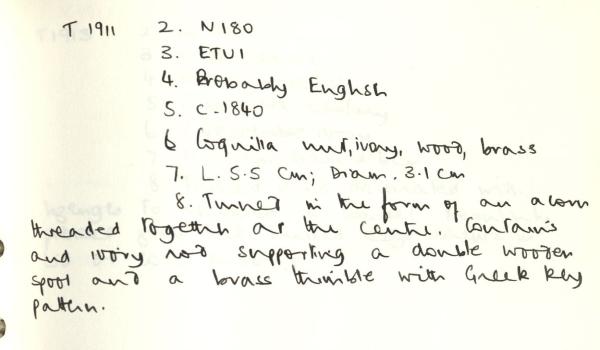 T 1911 2. N180
3. ETUI
4. Probably English
5. C.1840
6 Coquilla nut, ivory, wood, brass
7. L. 5.5 cm; Diam. 3.1 cm
8. Turned in the form of an acorn
threaded together at the centre. Contains
and ivory rod supporting a double wooden
spool and a brass thimble with Greek Key
pattern.